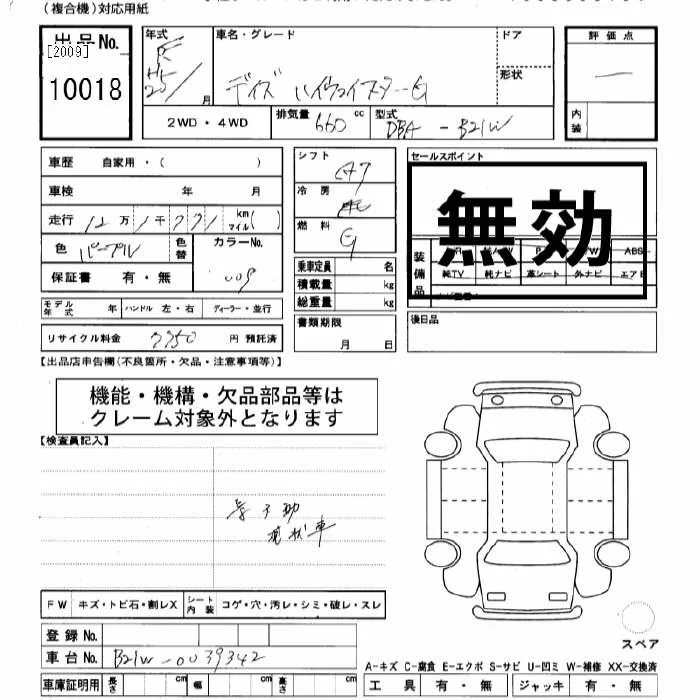 (複合機)対応用紙
出品No. [2009] 10018
年式 H 25 / 月
車名・グレード ドア
デイズ ハイウェイスターG
形状
2WD・4WD 排気量 660 cc 型式 DBA-B21W
評価点
内装
車歴 自家用・( )
車検 年 月
走行 12万1千771 km マイル( )
色 パープル 色替 カラーNo. 009
保証書 有・無
モデル年式 年 ハンドル 左・右 ディーラー・並行
リサイクル料金 円 預託済
シフト
冷房
燃料 G
乗車定員 名
積載量 kg
総重量 kg
書類期限
月 日
セールスポイント
無効
装備品 ABS
純TV 純ナビ 革シート 外ナビ エアB
後日品
【出品店申告欄(不良箇所・欠品・注意事項等)】
機能・機構・欠品部品等は
クレーム対象外となります
【検査員記入】
不動
車
FW キズ・トビ石・割レX シート内装 コゲ・穴・汚レ・シミ・破レ・スレ
登録No.
車台No. B21W-0039342
車庫証明用 長さ cm 幅 cm 高さ cm
スペア
A-キズ C-腐食 E-エクボ S-サビ U-凹ミ W-補修 XX-交換済
工具 有・無 ジャッキ 有・無